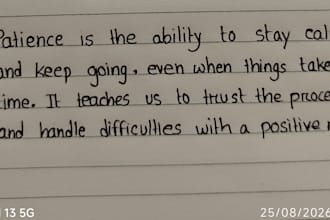 Patience is the ability to stay cal
and keep going, even when things take
time. It teaches us to trust the proce
and handle difficulties with a positive
13 5G
25/08/2026